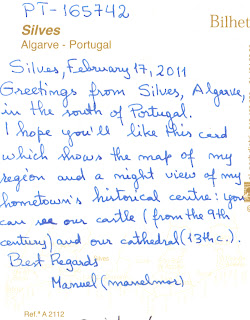 PT-165742
Silves
Bilhet
Algarve - Portugal
Silves, February 17, 2011
Greetings from Silves, Algarve,
in the south of Portugal.
I hope you'll like this card
which shows the map of my
region and a night view of my
hometown's historical centre: you
can see our castle (from the 9th
century) and our cathedral (13th c.).
Best Regards
Manuel (manelmar)
Ref.ª A 2112